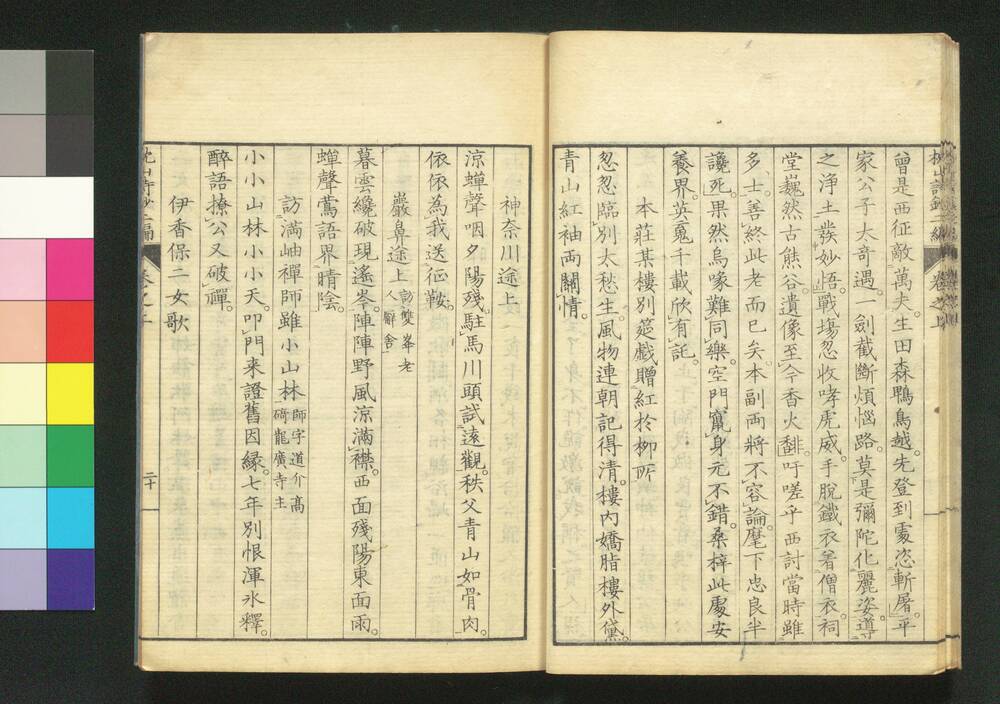 曾是西征敵萬夫。生田森鴨鳥越。先登到處恣斬屠。平
家公子太奇遇。一劍截斷煩惱路。莫是彌陀化麗姿。導
之淨土發妙悟。戰場忽收哮虎威。手脫鐵衣著僧衣。祠
堂巍然古熊谷。遺像至今香火馡。吁嗟乎西討當時雖
多士。善終此老而已矣。本副兩將不容論。麾下忠良半
讒死。果然烏喙難同樂。空門竄身元不錯。桑梓此處安
養界。英冤千載欣有託。
本莊某樓別筵戲贈紅於柳所
怱怱臨別太愁生。風物連朝記得清。樓內嬌脂樓外黛。
青山紅袖兩關情。
枕山詩鈔二編 卷之上
神奈川途上
涼蟬聲咽夕陽殘。駐馬川頭試遠觀。秩父青山如骨肉。
依依為我送征鞍。
巖鼻途上 訪雙峯老人辭舍
暮雲纔破現遙岑。陣陣野風涼滿襟。西面殘陽東面雨。
蟬聲鶯語界晴陰。
訪滿岫禪師雖小山林 師字道介高碕龍廣寺主
小小山林小小天。叩門来證舊因緣。七年別恨渾氷釋。
醉語撩公又破禪。
伊香保二女歌
二十